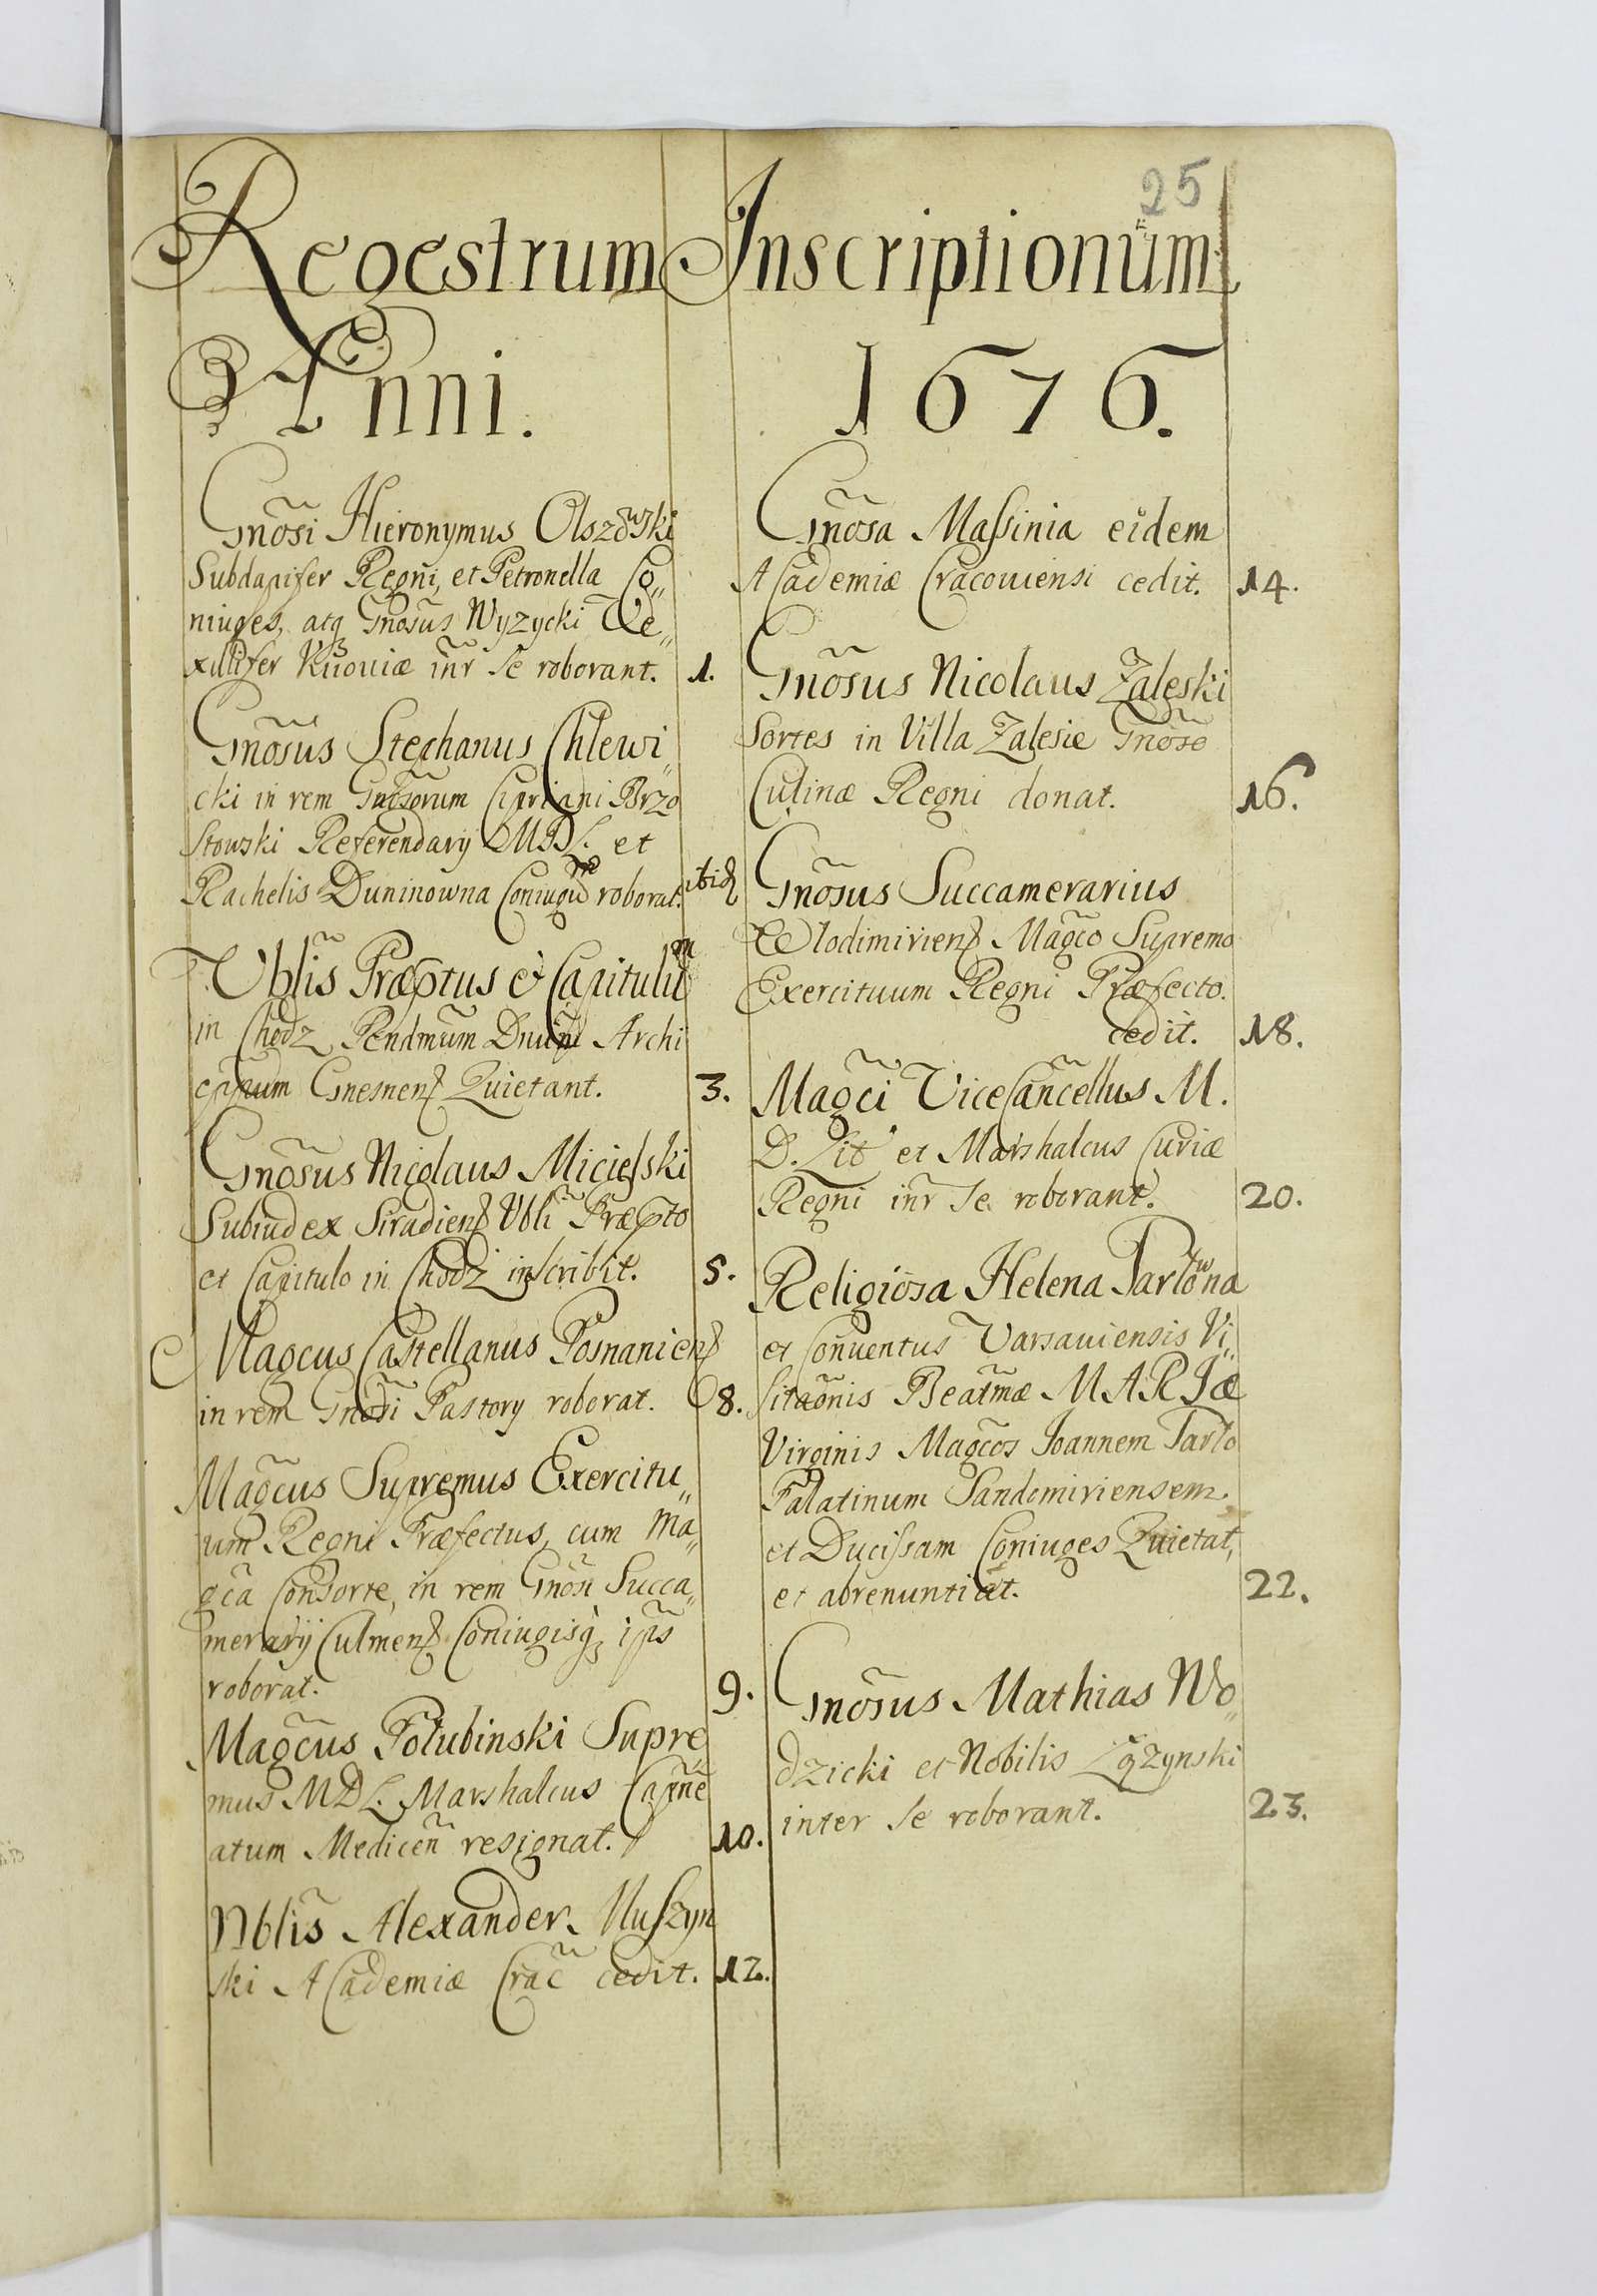 25
Regestrum Inscriptionum
Anni. 1676.
Gnõsi Hieronymus Olszowski
Subdapifer Regni, et Petronella Co„
niuges, atq Gnõsus Wyzycki Ve„
xillifer Kiiouiæ inr̃ se roborant. 1.
Gnõsus Stephanus Chlewi„
cki in rem Gnõsorum Cipriani Brzo
stowski Referendarÿ MDL. et
Rachelis Duninowna Coniugũ roborat. ibid
Vblis̃ Præptus & Capitulum
in Chodz Rendmum Dnum̃ Archi
eppum Gnesnens Quietant. 3.
Gnõsus Nicolaus Micielski
Subiudex Siradiens Vbli Præpto
et Capitulo in Chodz inscribit. 5.
Magcus Castellanus Posnaniens
in rem Gnõsi Pastory roborat. 8.
Magc̃us Supremus Exercitu„
um Regni Præfectus, cum Ma„
gca Consorte, in rem Gnõsi Succa„
merarÿ Culmens Coniugisq ips
roborat. 9.
Magc̃us Połubinski Supre„
mus MDL. Marshalcus Capne
atum Medicen̄ resignat. 10.
Nblis̃ Alexander Muszyn
ski ACademiæ Crac̃ cedit. 12.
Gnõsa Massinia eidem
ACademiæ Cracouiensi cedit. 14.
Gnõsus Nicolaus Zaleski
Sortes in Villa Zalesie Gnõso
Culinæ Regni donat. 16.
Gnõsus Succamerarius
Wlodimiriens Magc̃o Supremo
Exercituum Regni Præfecto.
cedit. 18.
Magc̃i ViceCancellus M.
D. Lit et Marshalcus Curiæ
Regni inr̃ se roborant. 20.
Religiosa Helena Tarłowna
et Conuentus Varsauiensis Vi„
sitaõnis Beatmæ MARIæ
Virginis Magc̃os Joannem Tarło
Palatinum Sandomiriensem
et Ducissam Coniuges Quietat,
et abrenuntiat. 22.
Gnõsus Mathias Wo„
dzicki et Nobilis Łązynski
inter se roborant. 23.